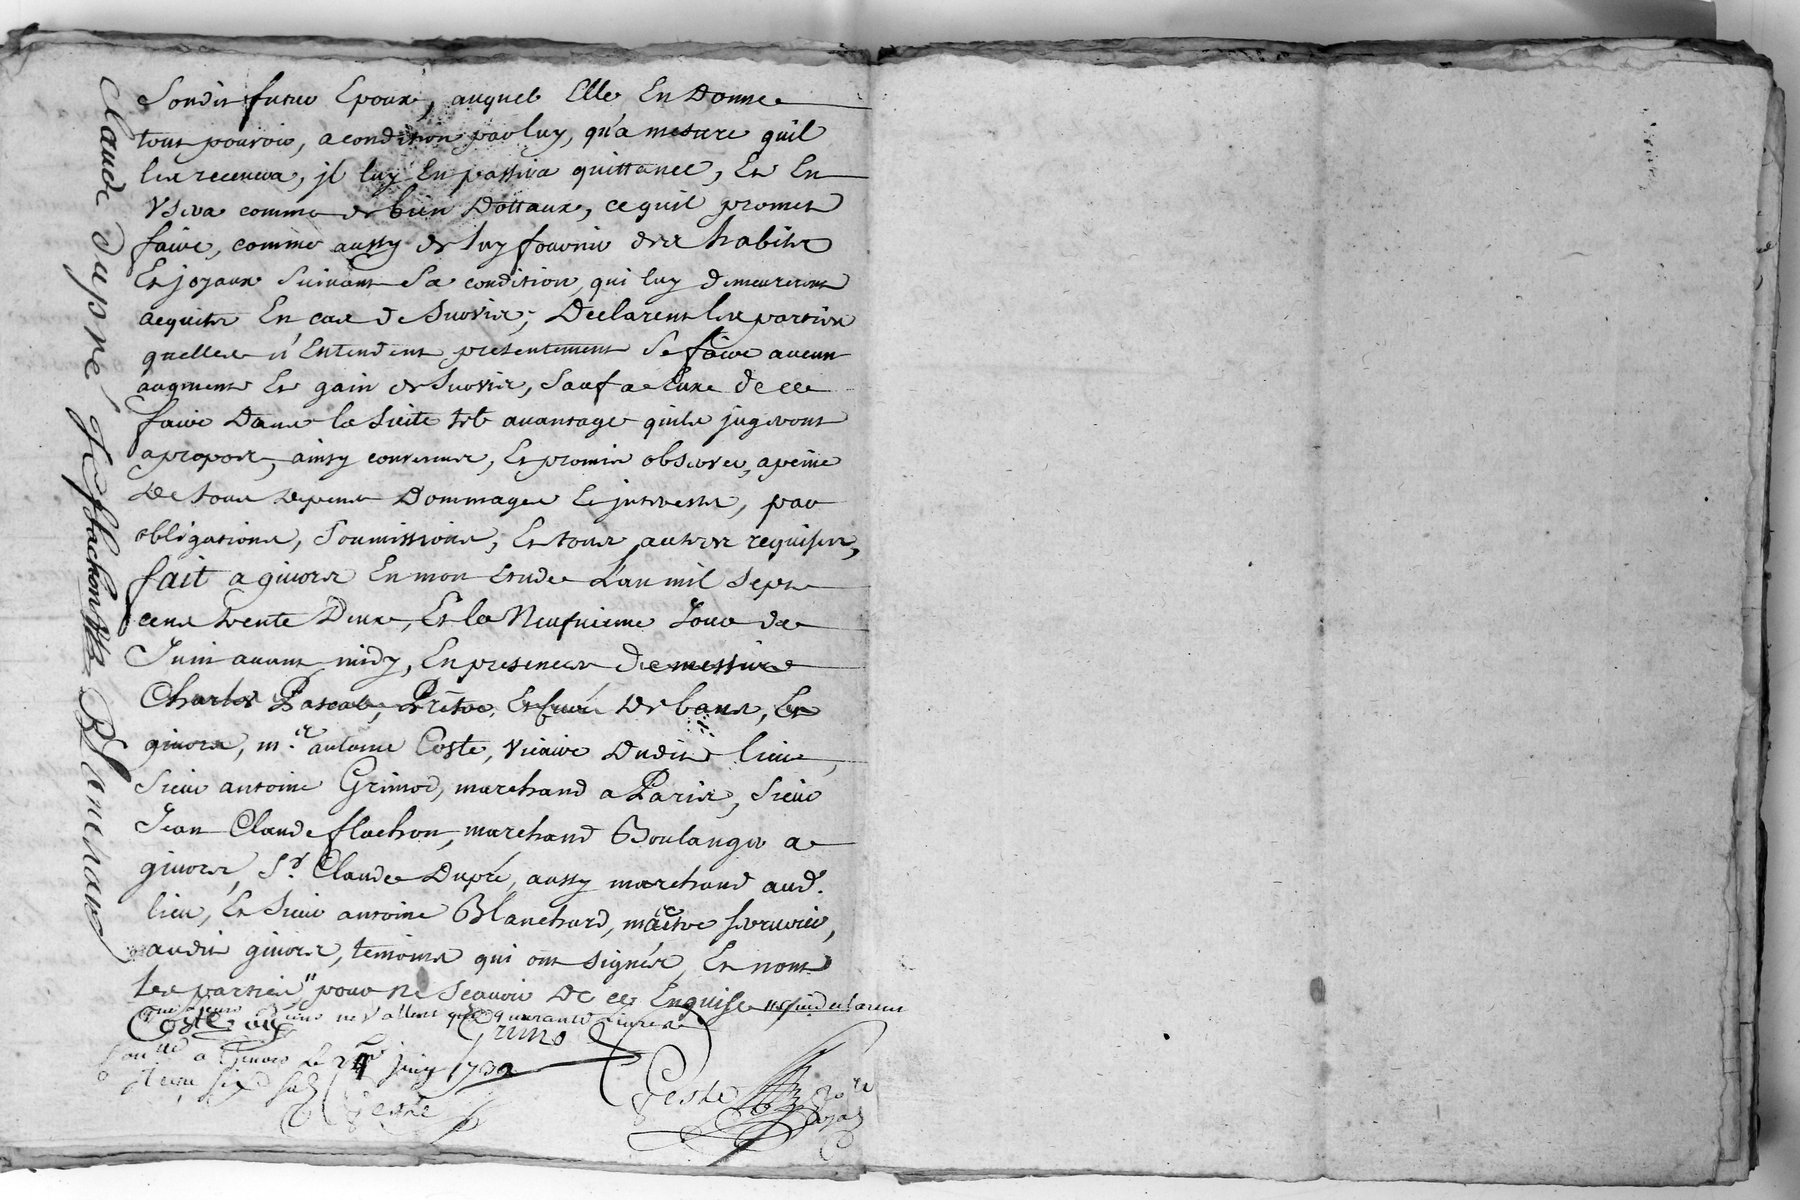 Sondit futur Epoux, auquel Elle En Donne
tout pouvoir, a condition par luy, qu'a mesure quil
les recevra, jl luy En passera quittance, Et En
Usera comme de bien Dottaux, ce quil promet
faire, comme aussy de luy fournir des habits
Et joyaux suivant Sa condition, qui luy demeureront
acquits En cas de Survie; Declarent les parties
quelles n'Entendent presentement Se faire aucun
augment Et gain de Survie, Sauf a Eux de ce
faire Dans la Suite tel avantage quils jugeront
apropos, ainsy convenus, Et promis observer, apeine
De tous Depens Dommages Et jnterests, par
obligations, Soumissions, Et tous autres requises,
fait a givors En mon Etude L'an mil Sept
cens trente Deux, Et le Neufvieme Jour de
Juin avant midy, En presence de messire
Charles Pascal, Prêtre, Et Curé De bans, Et
givors, m.re antoine Coste, vicaire Dudit lieu,
Sieur antoine Grimod, marchand a Paris, Sieur
Jean Claude flachon, marchand Boulanger a
givors, S.r Claude Dupré, aussy marchand aud.
lieu, Et Sieur antoine Blanchard, maitre serrurier,
audit givors, temoins qui ont signés, Et nont
les parties pour ne Scavoir De ce Enquise
ne vallent que quarante Livres
Coste vic Grimo
a Givors le juin 1732
Claude Dupré J C flachon Blanchar